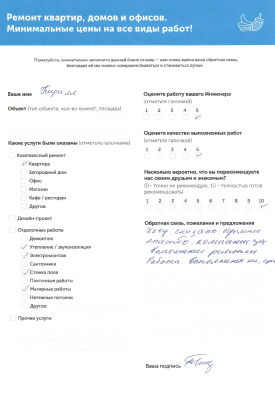 Ремонт квартир, домов и офисов.
Минимальные цены на все виды работ!
Пожалуйста, внимательно заполните данный бланк отзыва — нам очень важна ваша обратная связь,
благодаря ей мы можем совершенствоваться и становиться лучше.
Ваше имя Кирилл
Объект (тип объекта, кол-во комнат, площадь)
Какие услуги были оказаны (отметьте галочками)
Комплексный ремонт
Квартира
Загородный дом
Офис
Магазин
Кафе / ресторан
Другое:
Дизайн-проект
Отделочные работы
Демонтаж
Утепление / звукоизоляция
Электромонтаж
Сантехника
Стяжка пола
Плиточные работы
Малярные работы
Натяжные потолки
Другое:
Прочие услуги:
Оцените работу вашего Инженера
(отметьте галочкой)
1 2 3 4 5
Оцените качество выполненных работ
(отметьте галочкой)
1 2 3 4 5
Насколько вероятно, что вы порекомендуете
нас своим друзьям и знакомым?
(1 - точно не рекомендую, 10 - полностью готов
рекомендовать)
1 2 3 4 5 6 7 8 9 10
Обратная связь, пожелания и предложения
Хочу сказать огромное
спасибо компании за
выполнение ремонта
Работа выполнена на
Ваша подпись